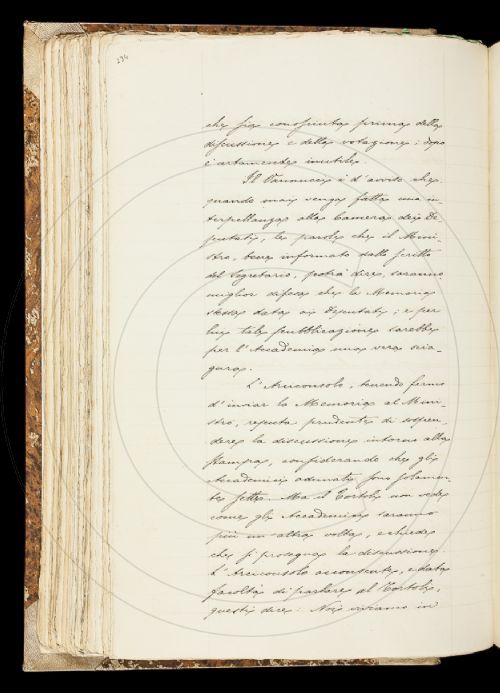 294
che sia conosciuta prima della
discussione e della votazione: dopo
è certamente inutile.
Il Vannucci è d'avviso che
quando mai venga fatta una in-
terpellanza alla Camera dei De
putati, le parole che il Mini-
stro, bene informato dallo scritto
del Segretario, potrà dire, saranno
miglior difesa che la Memoria
stessa data ai Deputati; e per
lui tale pubblicazione sarebbe
per l'Accademia una vera scia-
gura.
L'Arciconsolo, tenendo fermo
d'inviar la Memoria al Mini-
stro, reputa prudente di sospen-
dere la discussione intorno alla
stampa, considerando che gli
Accademici adunati sono solamen-
te sette. Ma il Tortoli non vede
come gli Accademici saranno
più un'altra volta, e chiede
che si prosegua la discussione.
L'Arciconsolo acconsente, e data
facoltà di parlare al Tortoli,
questi dice: Noi viviamo in